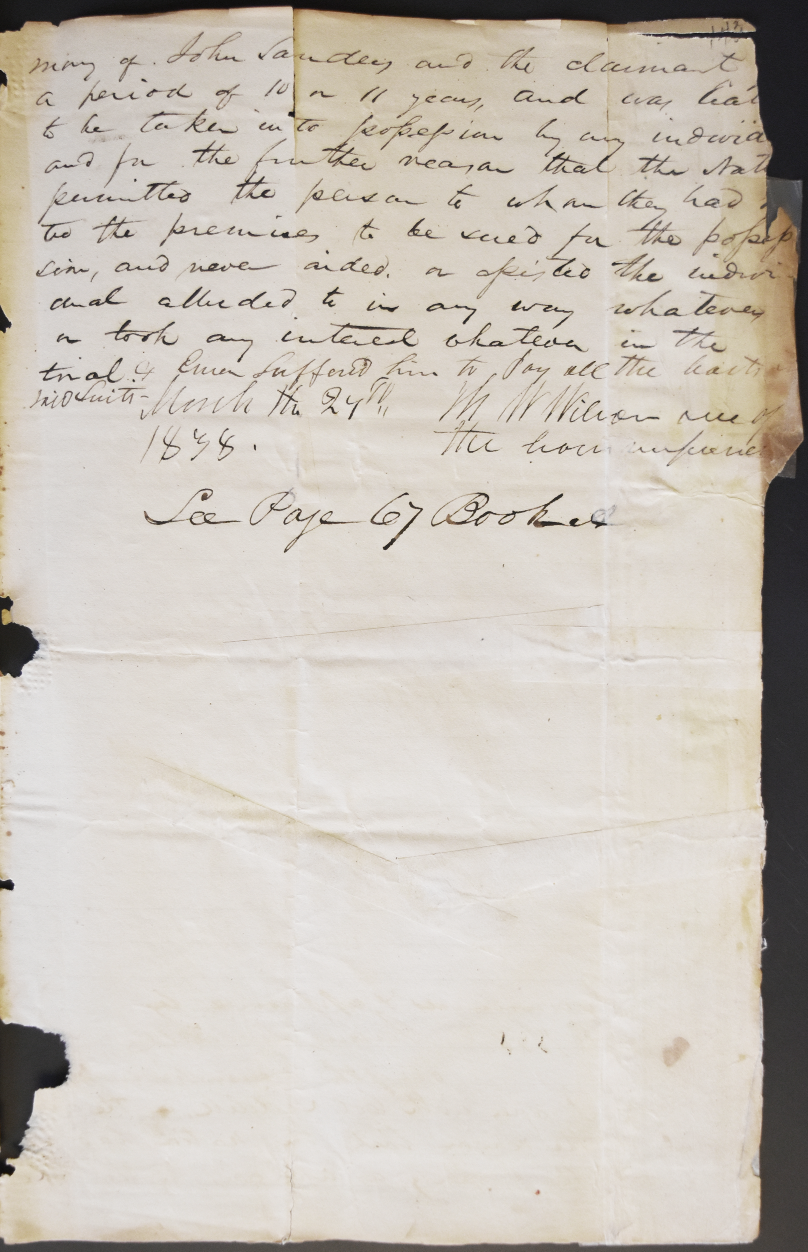 mony of John Sanders and the claimant
a period of 10 or 11 years, and was
to be taken into possession by any
and for the further reason that the
permitted the person to whom they had
to the premises to be sued for the posses
sion, and never aided or assisted the indivi
dual alluded to in any way whatever
or took any interest whatever in the
trial & Even Suffered him to Pay all the
said Suits - March the
1838. W Wilson one of
the
See Page 67 Book